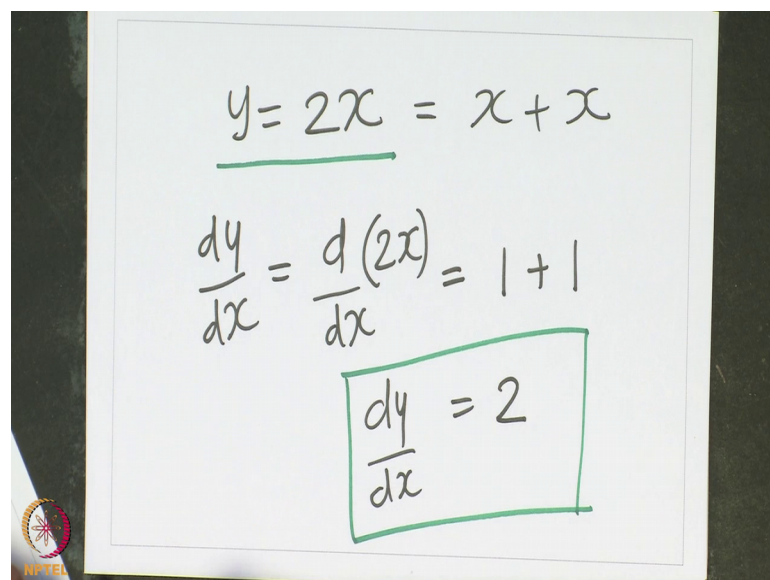 y = 2x = x + x
dy/dx = d/dx (2x) = 1 + 1
dy/dx = 2
NPTEL